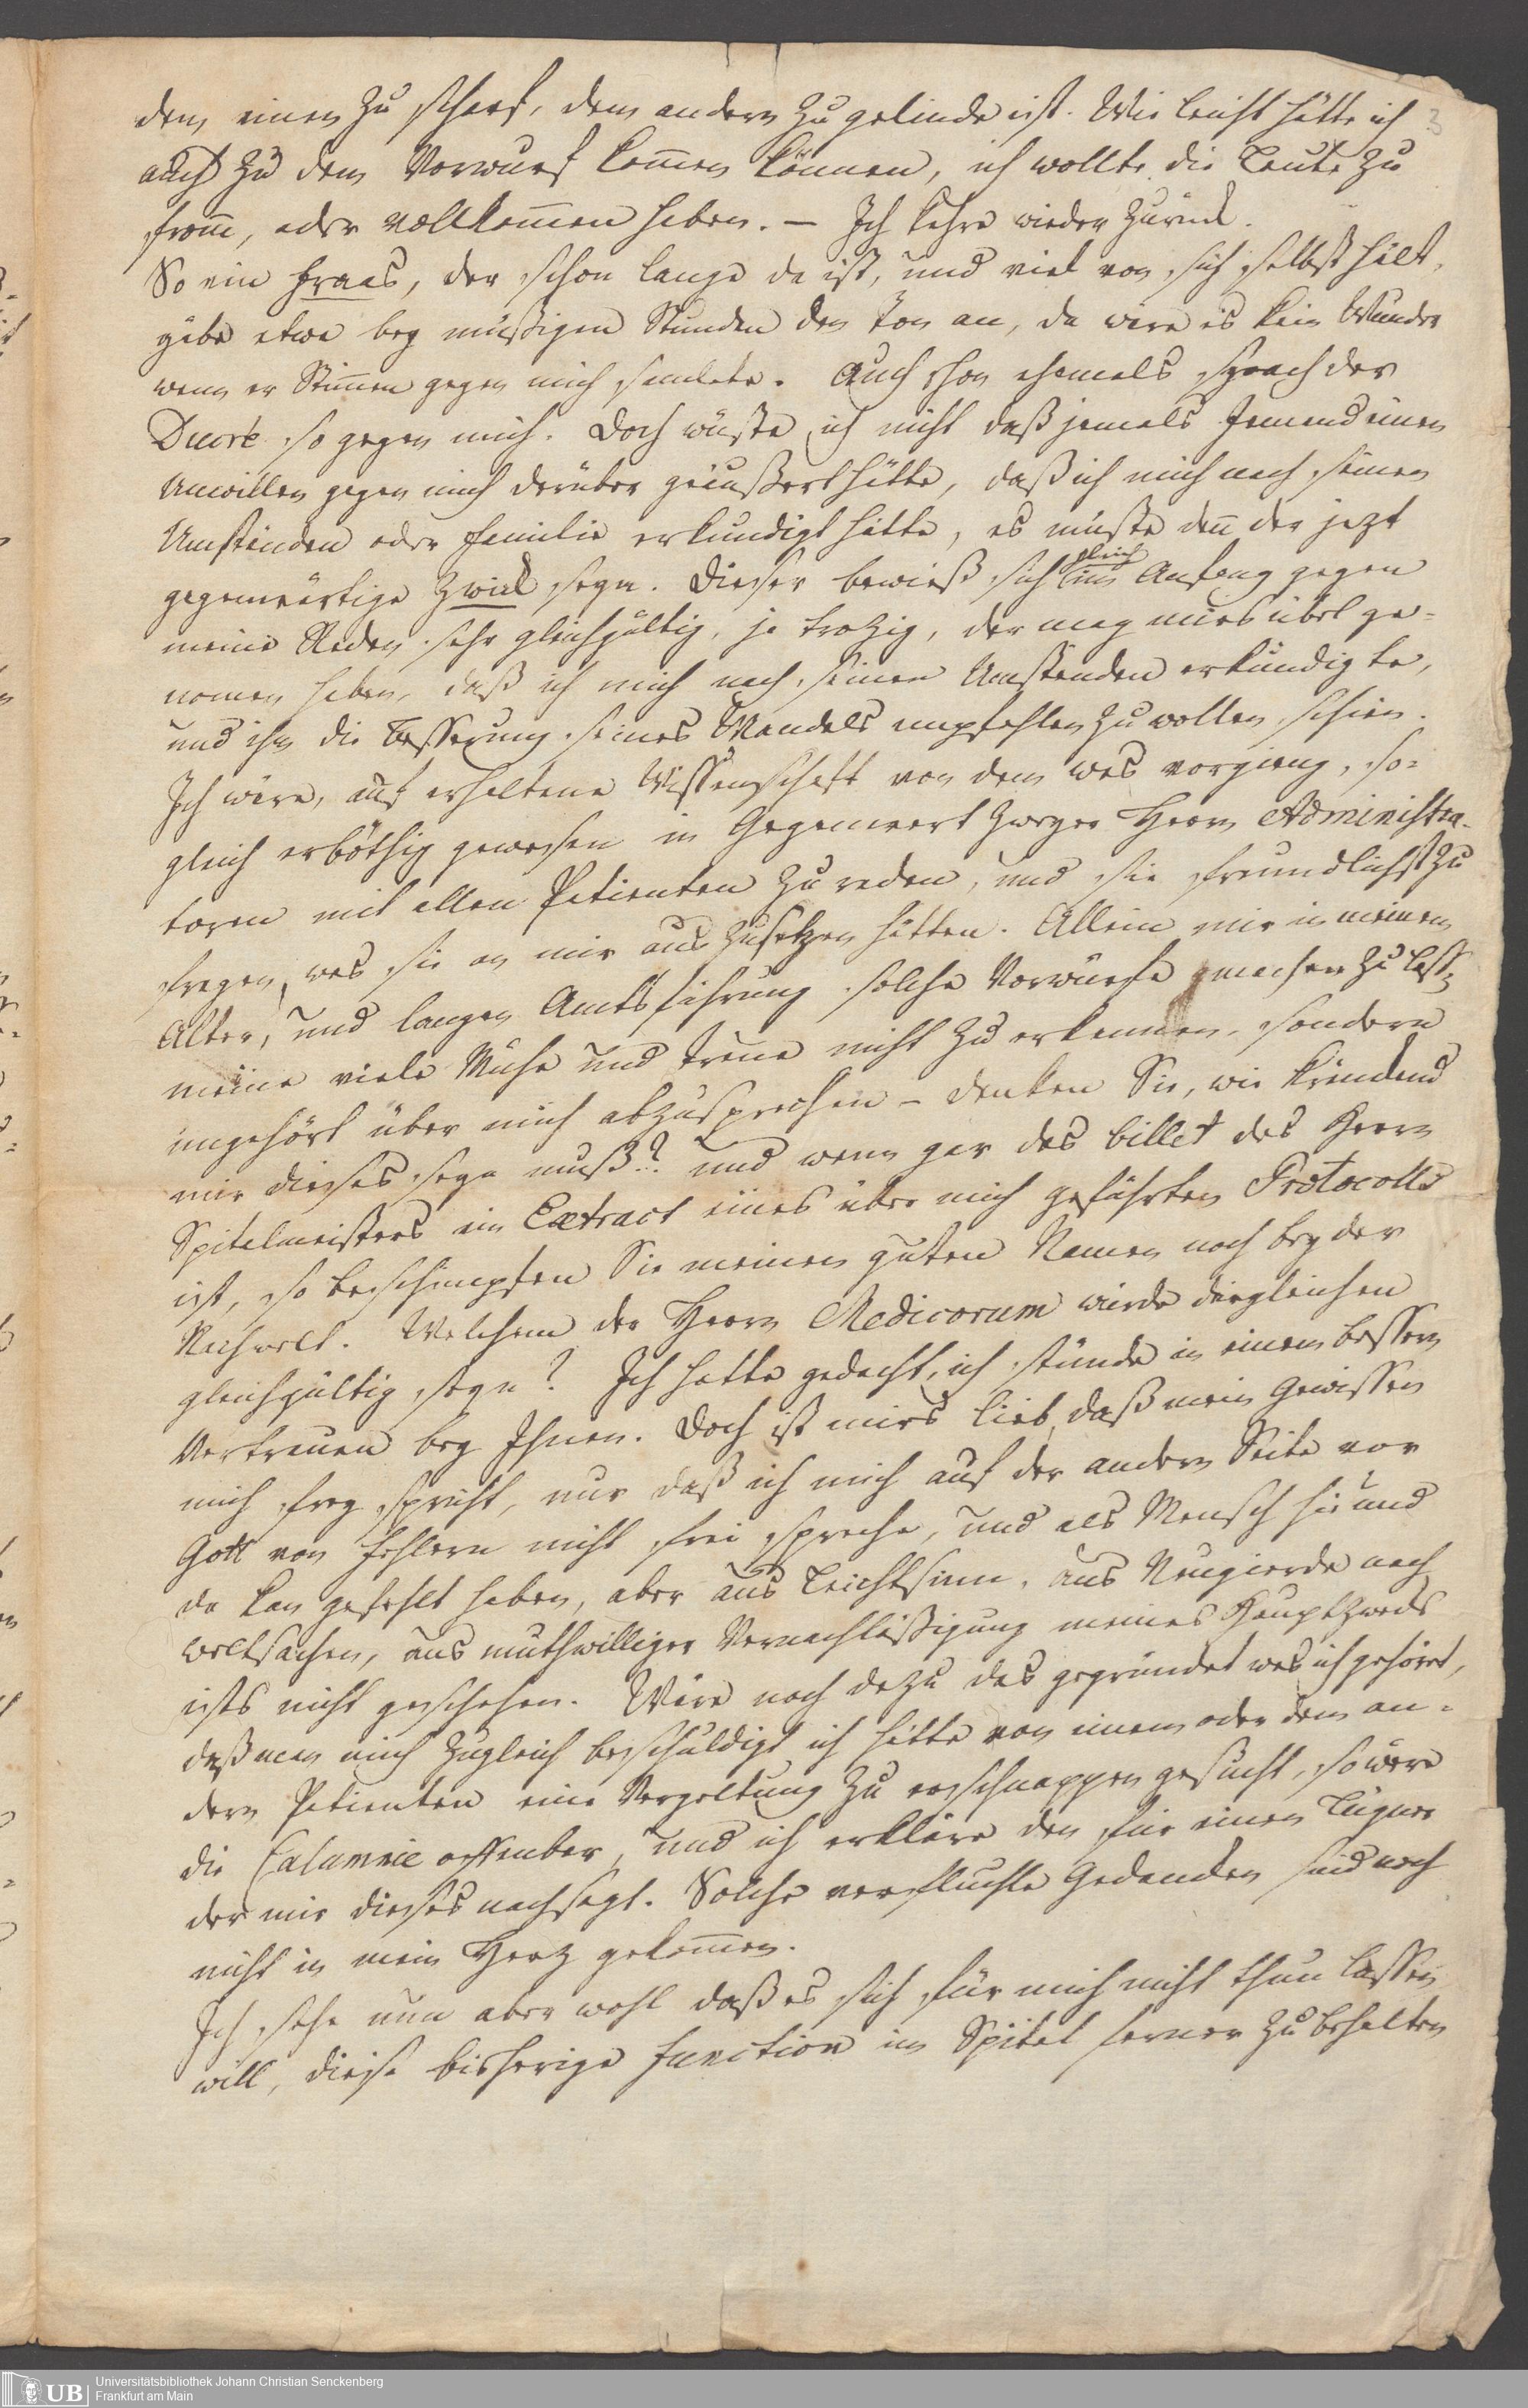 3
dem einen zu scharf, dem andern zu gelinde ist. Wie leicht hätte ich
auch zu dem Vorwurf kom̄en können, ich wollte die Leute zu
from̄, oder vollkom̄en haben. — Ich kehre wieder zurück.
So ein Fraas, der schon lange da ist, und viel von sich selbst hält,
gäbe etwa bey müßigen Stunden den Ton an, da wäre es kein Wunder
wenn er Stim̄en gegen mich samlete. Auch schon ehemals sprach der
Ducré so gegen mich. Doch wüßte ich nicht daß jemals Jemand einen
Unwillen gegen mich darüber geäußert hätte, daß ich mich nach seinen
Umständen oder Familie erkundigt hätte, es müßte den̄ der jezt
gegenwärtige Zwick seyn. Dieser bewieß sich gleich im Anfang gegen
meine Reden sehr gleichgültig, ja trozig, der mag mirs übel ge-
nomen haben, daß ich mich nach seinen Umständen erkundigte,
und ihm die Besserung seines Wandels empfehlen zu wollen schien.
Ich wäre, auf erhaltene Wissenschaft von dem was vorgieng, so-
gleich erböthig gewesen in Gegenwart zweyer Herrn Administra-
toren mit allen Patienten zu reden, und sie freundlichst zu
fragen, was sie an mir auszusetzen hätten. Allein mir in meinem
Alter, und langen Amtsführung solche Vorwürfe machen zu lassn
meine viele Mühe und Treue nicht zu erkennen, sondern
ungehört über mich abzusprechen – denken Sie, wie kränckend
mir dieses seyn muß? und wenn gar das billet des Herrn
Spitalmeisters ein Extract eines über mich geführten Protocolls
ist, so beschimpfen Sie meinen guten Namen noch bey der
Nachwelt. Welchem der Herrn Medicorum würde dergleichen
gleichgültig seyn? Ich hatte gedacht, ich stünde in einem bessern
Vertrauen bey Ihnen. Doch ist mirs lieb, daß mein Gewissen
mich frey spricht, nur daß ich mich auf der andern Seite vor
Gott von Fehlern nicht frei spreche, und als Mensch hie und
da kan gefehlt haben, aber aus Leichtsinn, aus Neugierde nach
Weltsachen, aus muthwilliger Vernachläßigung meines Hauptzwecks
ists nicht geschehen. Wäre noch dazu das gegründet was ich gehöret,
daß man mich zugleich beschuldigt ich hätte von einem oder dem an-
dern Patienten eine Vergeltung zu erschnappen gesucht, so wäre
die Calumnie offenbar, und ich erkläre den für einen Lügner
der mir dieses nachsagt. Solche verfluchte Gedancken sind noch
nicht in mein Herz gekom̄en.
Ich sehe nun aber wohl daß es sich für mich nicht thun lassen
will, diese bisherige Function im Spital ferner zu behalten
UB
Universitätsbibliothek Johann Christian Senckenberg
Frankfurt am Main